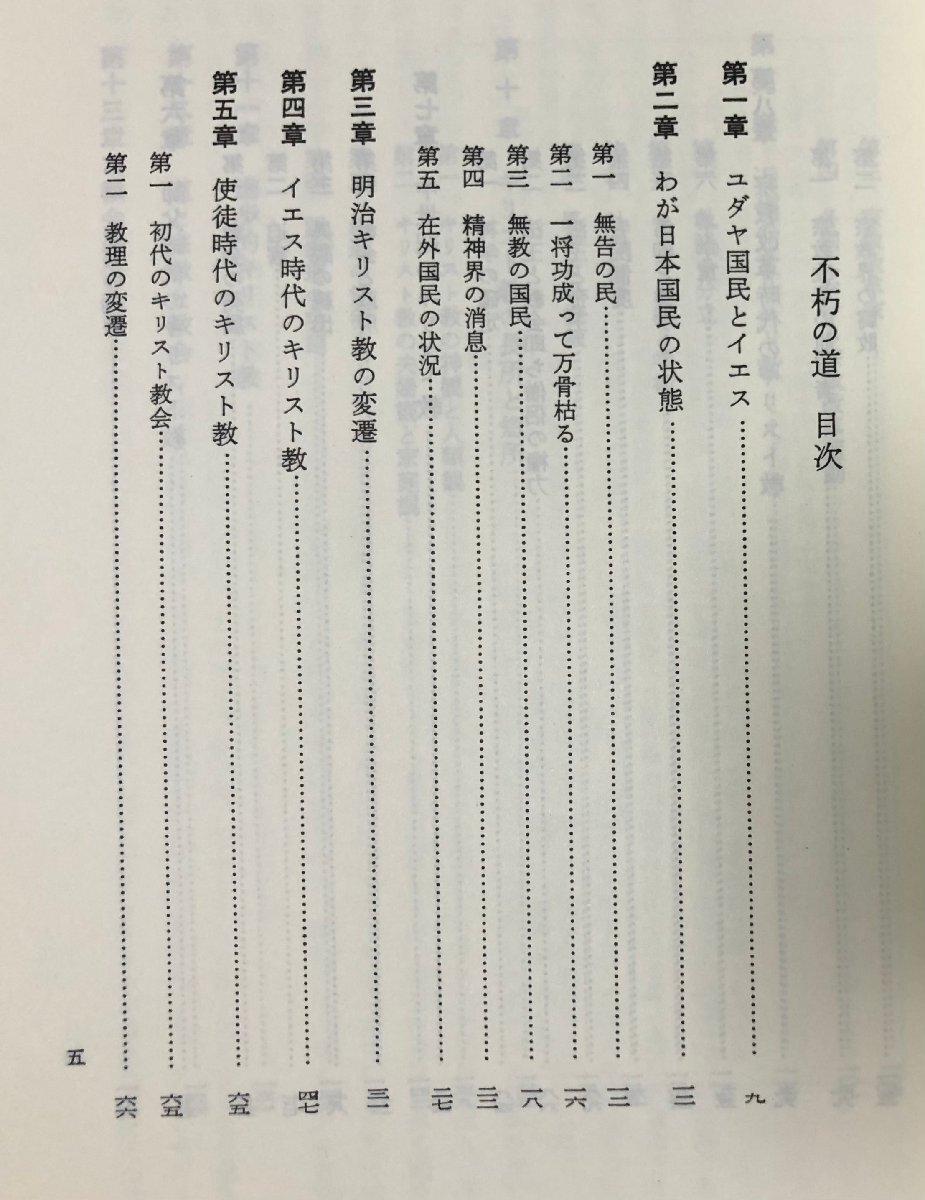 不朽の道　目次
第一章　ユダヤ国民とイエス……九
第二章　わが日本国民の状態……一二
第一　無告の民……一二
第二　一将功成って万骨枯る……一六
第三　無教の国民……一八
第四　精神界の消息……二三
第五　在外国民の状況……二七
第三章　明治キリスト教の変遷……三一
第四章　イエス時代のキリスト教……四七
第五章　使徒時代のキリスト教……六五
第一　初代のキリスト教会……六五
第二　教理の変遷……六六
五